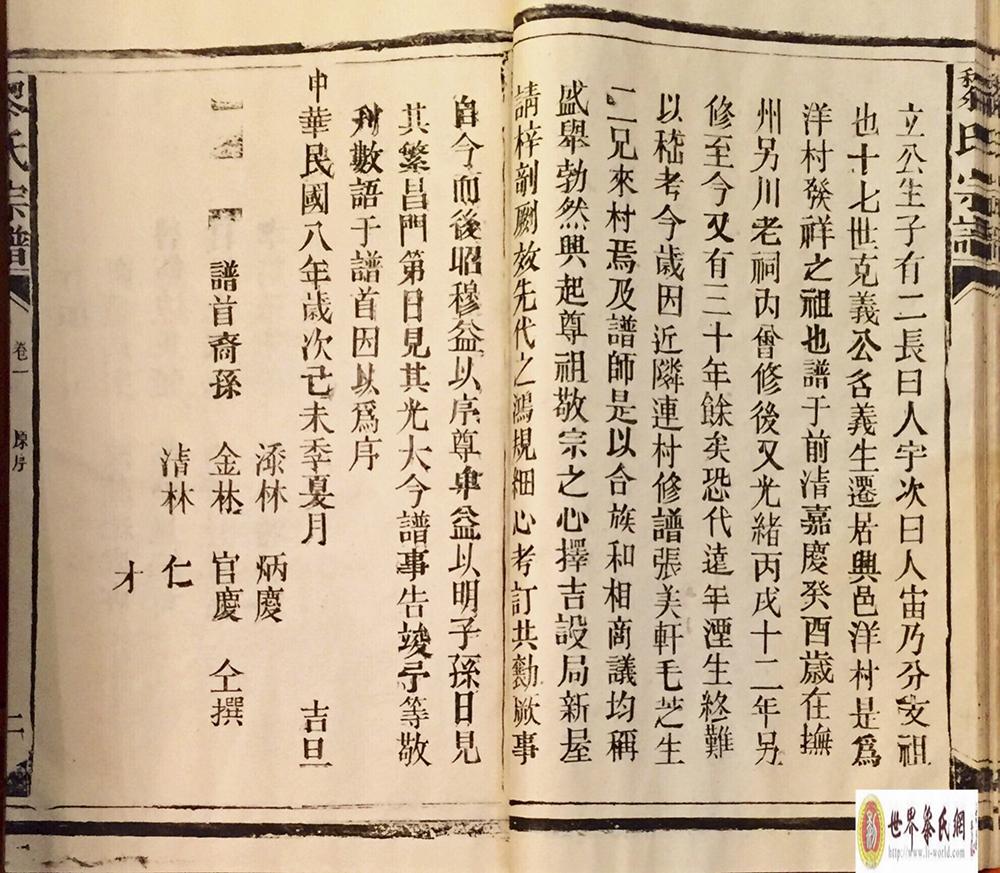 黎氏宗譜
立公生子有二長曰人宇次曰人宙乃分支祖
也十七世克義公名義生遷居興邑洋村是爲
洋村發祥之祖也譜于前清嘉慶癸酉歲在撫
州另川老祠內曾修後又光緒丙戌十二年另
修至今又有三十年餘矣恐代遠年湮生終難
以嵇考今歲因近隣連村修譜張美軒毛芝生
二兄來村焉及譜師是以合族和相商議均稱
盛舉勃然興起尊祖敬宗之心擇吉設局新屋
請梓剞劂效先代之鴻規細心考訂共勷厥事
自今而後昭穆益以序尊卑益以明子孫日見
其繁昌門第日見其光大今譜事告竣予等敬
刋數語于譜首因以爲序
中華民國八年歲次己未季夏月 吉旦
添林 炳慶
譜首裔孫 金林 官慶 仝撰
清林 仁
才
黎氏宗譜 卷一 原序 二
世界黎氏網
http://www.li-world.com